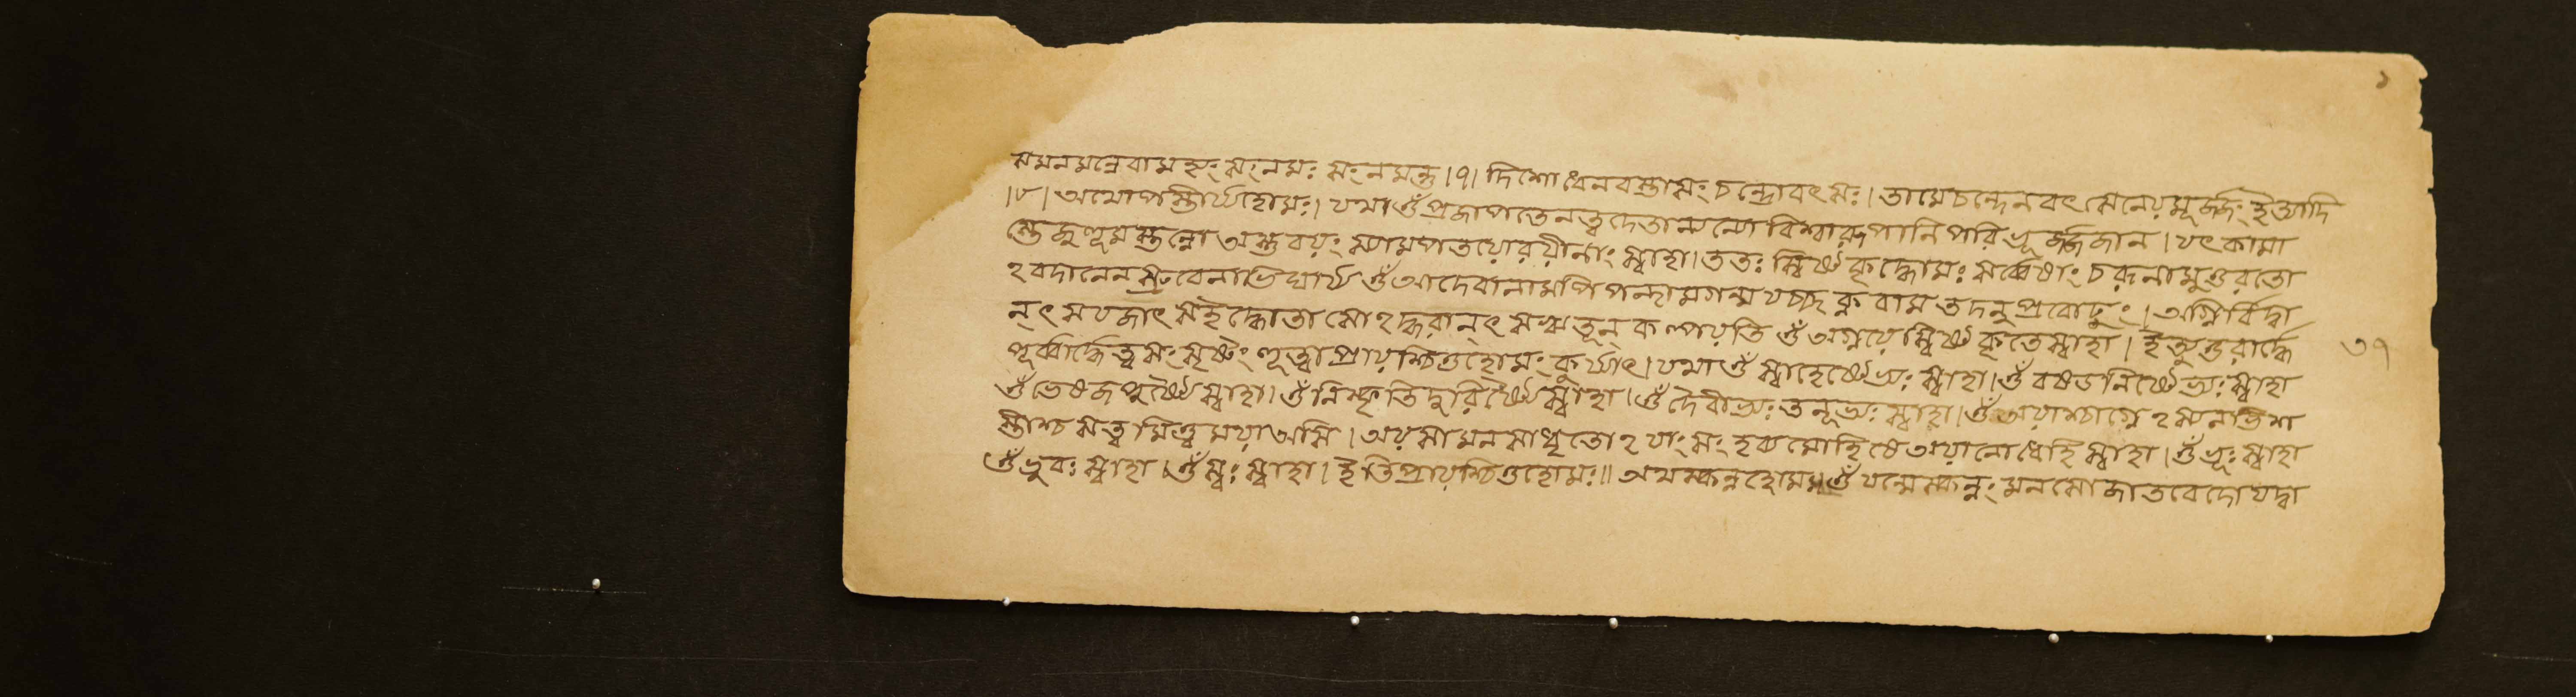 ১
সমনমন্নেবামহ্যং সংনমঃ সংনমন্তু ।৭। দিশোধেনবস্তাসং চন্দ্রোবৎসঃ। তামেচন্দ্রেনবৎসেনেয়মূর্জ্জং ইত্যাদি
।৮। অথোপস্তীর্য্যহোমঃ। যথা ওঁ প্রজাপতেনত্বদেতান্যন্যো বিশ্বারূপানি পরি ভূর্জ্জজান । যৎ কামা
স্তেজুহুমস্তন্নো অস্তু বয়ং স্যামপতয়োরয়ীনাং স্বাহা। ততঃ স্বিষ্ট কৃদ্ধোমঃ সর্ব্বেষাং চরূনামুত্তরতো
ঽবদানেন স্রুবেনাভিঘার্য্য ওঁ আদেবানামপি পন্হামগন্ম যচ্ছ ক্ল বাম তদনু প্রবোঢুং । অগ্নির্বিদ্বা
ন্ৎ সযজাৎ সইদ্ধোতা সোঽদ্ধরান্ৎ সঋতূন্ কল্পয়তি ওঁ অগ্নয়ে স্বিষ্ট কৃতেস্বাহা । ইত্যুত্তরার্দ্ধে
পূর্ব্বার্দ্ধেত্বসং সৃষ্টং হুত্বা প্রায়শ্চিত্তহোমং কুর্য্যাৎ। যথা ওঁ স্বাহেষ্টেভ্যঃ স্বাহা। ওঁ বষডনিষ্টেভ্যঃ স্বাহা
৩৭
ওঁ ভেষজ দুষ্ট্যৈ স্বাহা। ওঁ নিষ্কৃতি দুরিষ্ট্যৈ স্বাহা । ওঁ দৈবীভ্যঃ তনূভ্যঃ স্বাহা। ওঁ অয়াশ্চাগ্নে ঽস্যনভিশ
স্তীশ্চ সত্ব মিত্ত্ব ময়া অসি । অয়সা মনসাধৃতোঽ যাং সং হব্য মোহিষে অয়ানো ধেহি স্বাহা । ওঁ ভূঃ স্বাহা
ওঁ ভুবঃ স্বাহা । ওঁ স্বঃ স্বাহা । ইতি প্রায়শ্চিত্তহোমঃ॥ অথ স্কন্নহোমঃ॥ ওঁ যন্মে স্কন্নং মনসো জাতবেদো যদ্বা